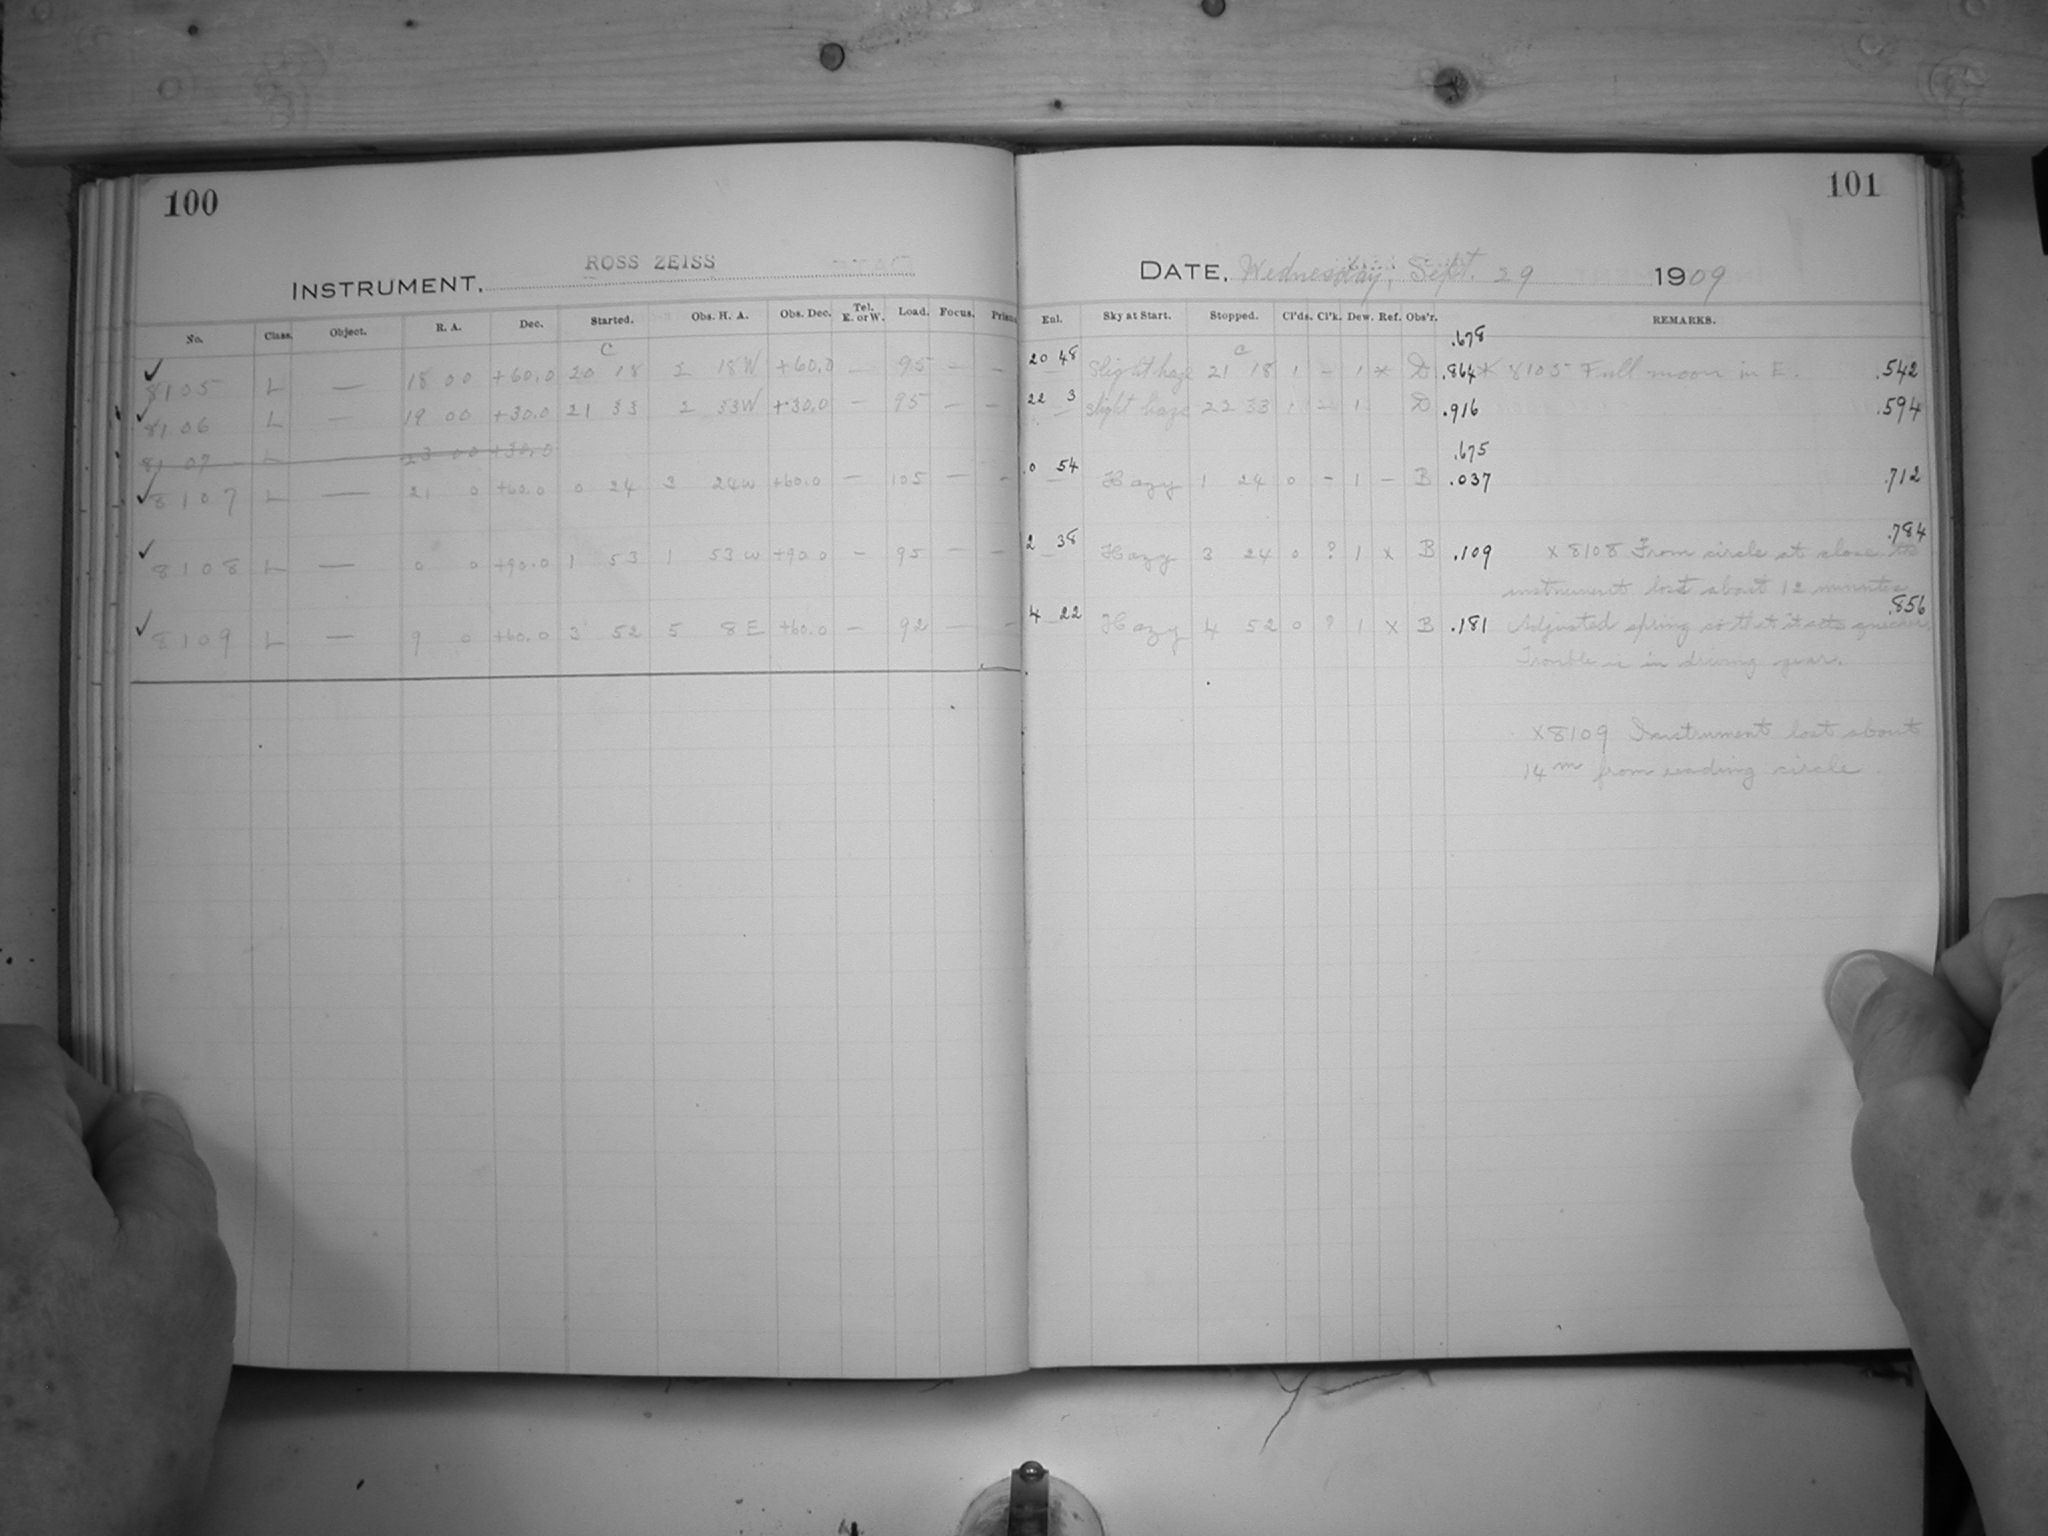 100
INSTRUMENT. ROSS ZEISS
No. Class. Object. R. A. Dec. Started. Obs. H. A. Obs. Dec. Tel. E. or W. Load. Focus. Prism
C
✓ 8105 L — 18 00 +60.0 20 18 2 18W +60.0 — 95 — —
✓ 8106 L — 19 00 +30.0 21 33 2 33W +30.0 — 95 — —
8107 L — 23 00 +30.0
✓ 8107 L — 21 0 +60.0 0 24 3 24W +60.0 — 105 — -
✓ 8108 L — 0 0 +90.0 1 53 1 53W +90.0 — 95 — —
✓ 8109 L — 9 0 +60.0 3 52 5 8E +60.0 — 92 — —
101
DATE. Wednesday, Sept. 29 1909
Enl. Sky at Start. Stopped. Cl'ds. Cl'k. Dew. Ref. Obs'r. REMARKS.
.678
C
20 48 Slight haze 21 18 1 - 1 x D .864 x 8105 Full moon in E. .542
22 3 Slight haze 22 33 1 - 1 D .916 .594
.675
0 54 Hazy 1 24 0 - 1 - B .037 .712
.784
2 38 Hazy 3 24 0 ? 1 x B .109 x 8108 From circle at close the
instrument lost about 12 minutes
.856
4 22 Hazy 4 52 0 ? 1 x B .181 Adjusted spring so that it acts quicker.
Trouble is in driving gear.
x8109 Instrument lost about
14 m from reading circle.